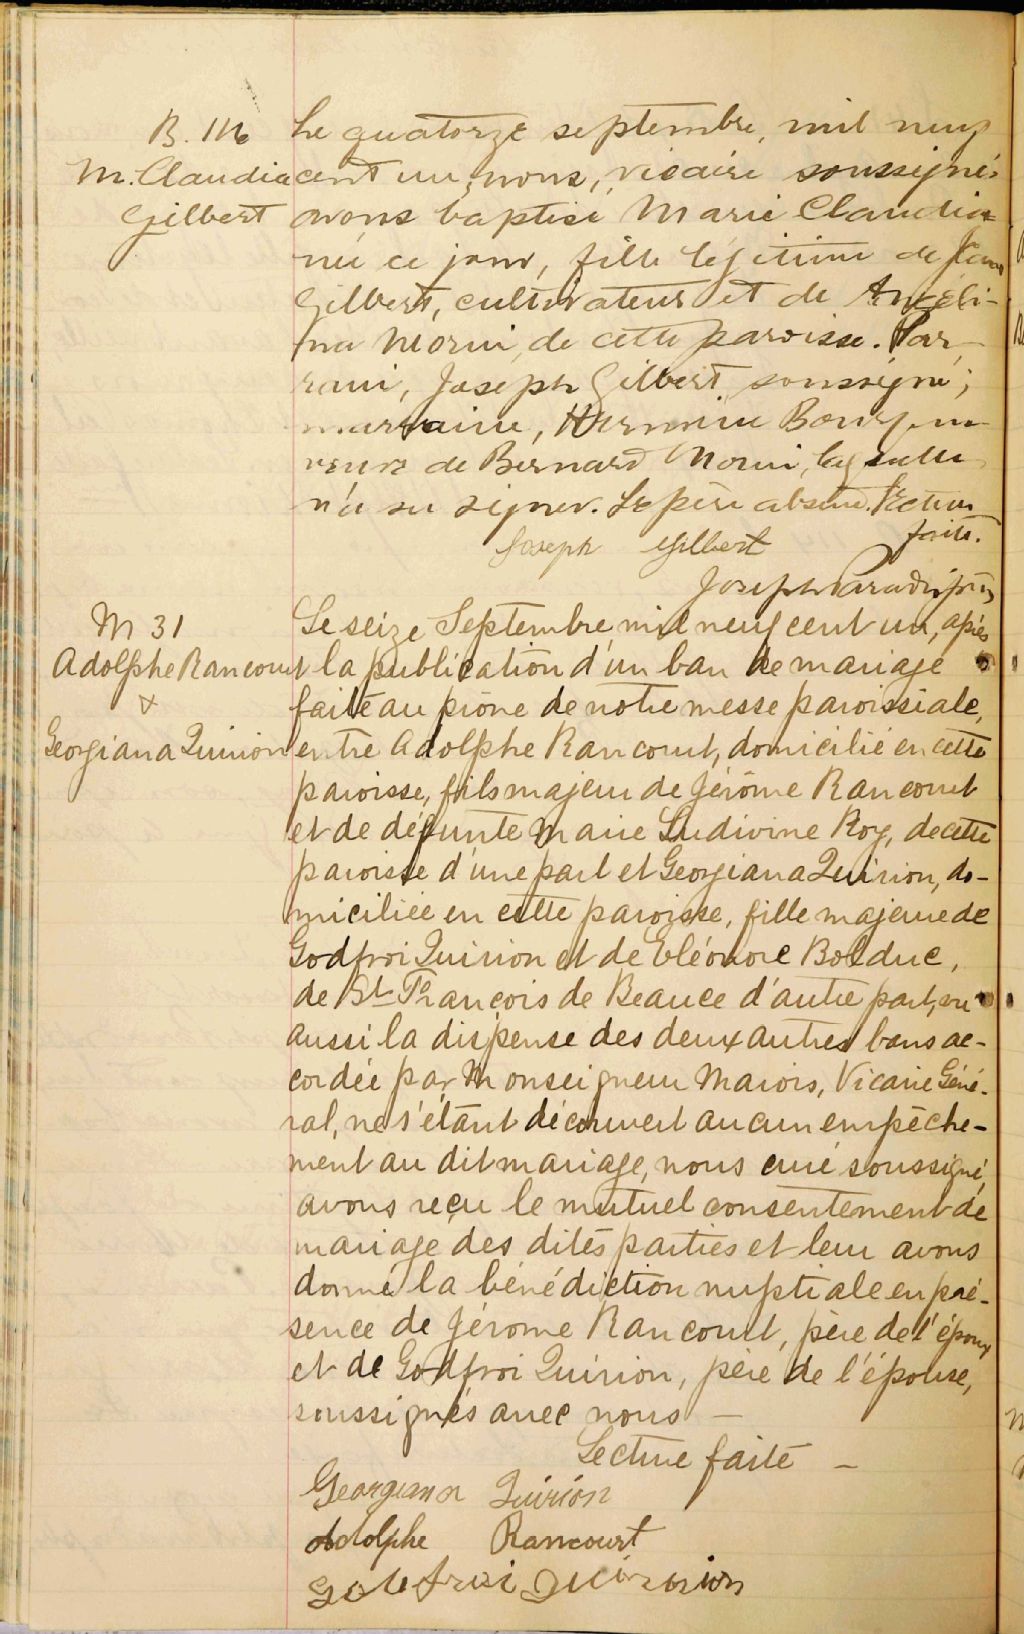 B. 116
M. Claudia
Gilbert
Le quatorze septembre, mil neuf
cent un, nous, vicaire soussigné,
avons baptisé Marie Claudia
née ce jour, fille légitime de
Gilbert, cultivateur et de Angéli-
na Morin, de cette paroisse. Par-
rain, Joseph Gilbert soussigné;
marraine, Hermine
veuve de Bernard Morin, laquelle
n'a su signer. Le père absent. Lecture
faite.
Joseph Gilbert
Joseph Paradis ptre
M 31
Adolphe Rancourt
&
Georgiana Quirion
Le seize Septembre mil neuf cent un, après
la publication d'un ban de mariage
faite au prône de notre messe paroissiale,
entre Adolphe Rancourt, domicilié en cette
paroisse, fils majeur de Jérôme Rancourt
et de défunte Marie Ludivine Roy, de cette
paroisse d'une part et Georgiana Quirion, do-
miciliée en cette paroisse, fille majeure de
Godfroi Quirion et de Eléonore Bolduc,
de St François de Beauce d'autre part, vu
aussi la dispense des deux autres bans ac-
cordée par Monseigneur Marois, Vicaire Géné-
ral, ne s'étant découvert aucun empêche-
ment au dit mariage, nous curé soussigné,
avons reçu le mutuel consentement de
mariage des dites parties et leur avons
donné la bénédiction nuptiale en pré-
sence de Jérome Rancourt, père de l'époux
et de Godfroi Quirion, père de l'épouse,
soussignés avec nous —
Lecture faite —
Georgiana Quirion
Adolphe Rancourt
Godefroi Quirion